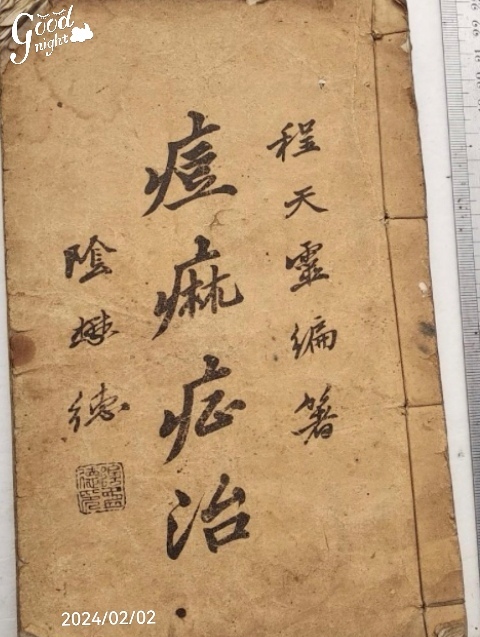 Good
night
程天靈編著
痘痳症治
陰懋德
2024/02/02